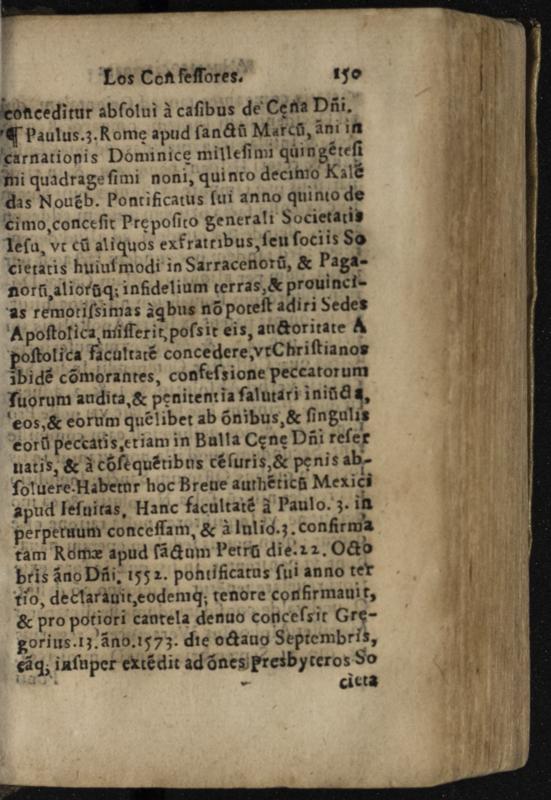 Los Confeſſores. 150
conceditur abſolui à caſibus de Cęna Dñi.
¶ Paulus.3. Romę apud ſanctũ Marcũ, ãni in
carnationis Dominicę milleſimi quingẽteſi
mi quadrageſimi noni, quinto decimo Kalẽ
das Nouẽb. Pontificatus ſui anno quinto de
cimo, conceſit Prępoſito generali Societatis
Ieſu, vt cũ aliquos exfratribus, ſeu ſociis So
cietatis huiuſmodi in Sarracenorũ, & Paga-
norũ, aliorũq; infidelium terras, & prouinci-
as remotiſsimas àqbus nõ poteſt adiri Sedes
Apoſtolica, miſſerit, poſsit eis, auctoritate A
poſtolica facultatẽ concedere, vtChriſtianos
ibidẽ cõmorantes, confeſsione peccatorum
ſuorum audita, & pęnitentia ſalutari iniũcta,
eos, & eorum quẽlibet ab õnibus, & ſingulis
eorũ peccatis, etiam in Bulla Cęnę Dñi reſer
uatis, & à cõſequẽtibus cẽſuris, & pęnis ab-
ſoluere. Habetur hoc Breue authẽticũ Mexici
apud Ieſuitas. Hanc facultatẽ à Paulo. 3. in
perpetuum conceſſam, & à Iulio.3. confirma
tam Romæ apud ſãctum Petrũ die.22. Octo
bris ãno Dñi. 1552. pontificatus ſui anno ter
tio, declarauit, eodemq; tenore confirmauit,
& pro potiori cautela denuo conceſsit Gre-
gorius.13. ãno.1573. die octauo Septembris,
eãq; inſuper extẽdit ad õnes Presbyteros So
cieta